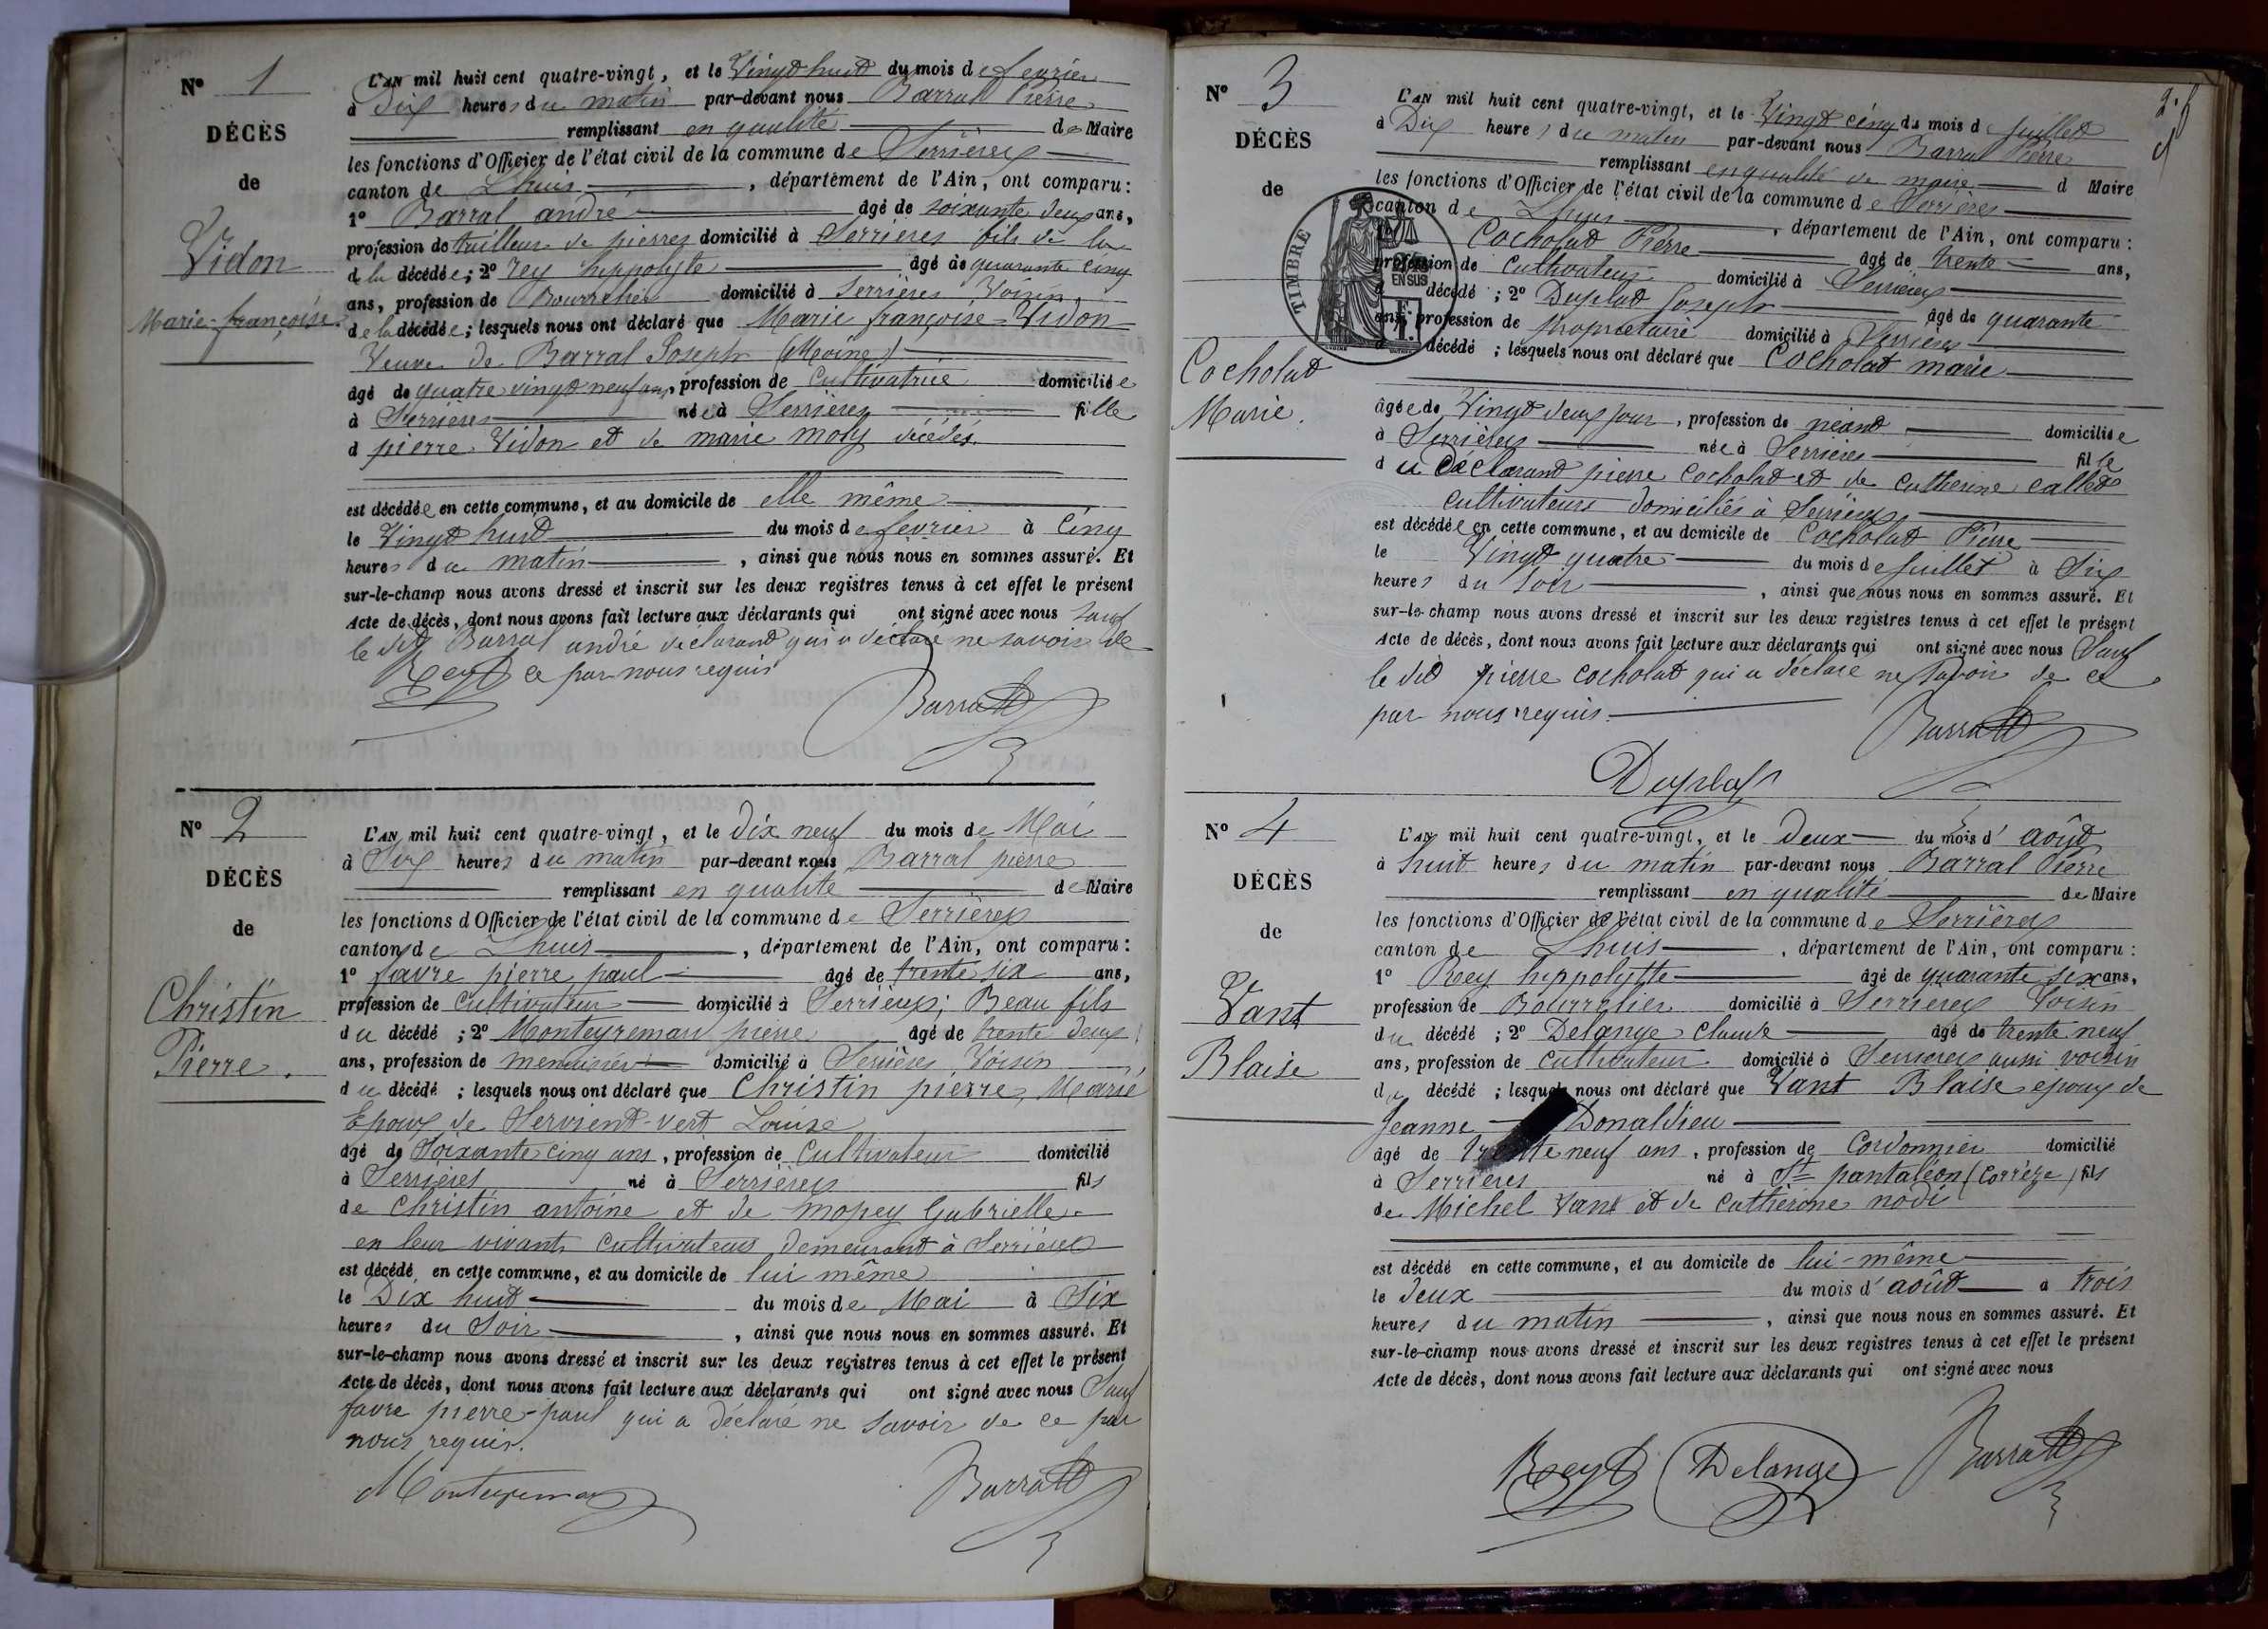 N° 1
DÉCÈS
de
Vidon
Marie-françoise.
L'AN mil huit cent quatre-vingt, et le Vingt huit du mois de fevrier
à Dix heures du matin par-devant nous Barral Pierre
remplissant en qualité de Maire
les fonctions d'Officier de l'état civil de la commune de Serrières
canton de Lhuis, département de l'Ain, ont comparu :
1° Barral andré âgé de soixante deux ans,
profession de tailleur de pierres domicilié à Serrières fils de la
d la décédée ; 2° rey hippolyte âgé de quarante cinq
ans, profession de Bourrelier domicilié à Serrières Voisin
de la décédée ; lesquels nous ont déclaré que Marie françoise Vidon
Veuve de Barral Joseph (Moine)
âgé de quatre vingt neuf ans, profession de Cultivatrice domiciliée
à Serrières née à Serrières fille
d pierre Vidon et de marie moly décédés
est décédée en cette commune, et au domicile de elle même
le Vingt huit du mois de fevrier à Cinq
heures du matin, ainsi que nous nous en sommes assuré. Et
sur-le-champ nous avons dressé et inscrit sur les deux registres tenus à cet effet le présent
Acte de décès, dont nous avons fait lecture aux déclarants qui ont signé avec nous sauf
le dit Barral andré déclarant qui a déclaré ne savoir de
ce par nous requis
Rey Barral
N° 2
DÉCÈS
de
Christin
Pierre.
L'AN mil huit cent quatre-vingt, et le dix neuf du mois de Mai
à Six heures du matin par-devant nous Barral pierre
remplissant en qualité de Maire
les fonctions d'Officier de l'état civil de la commune de Serrières
canton de Lhuis, département de l'Ain, ont comparu :
1° favre pierre paul âgé de trente six ans,
profession de Cultivateur domicilié à Serrières ; Beau fils
du décédé ; 2° Monteyremard pierre âgé de trente deux
ans, profession de menuisier domicilié à Serrières Voisin
du décédé ; lesquels nous ont déclaré que Christin pierre, Marié
Epoux de Servient-Vert Louise
âgé de Soixante cinq ans, profession de Cultivateur domicilié
à Serrières né à Serrières fils
de Christin antoine et de mopey Gabrielle
en leur vivant cultivateurs demeurant à Serrières
est décédé en cette commune, et au domicile de lui même
le Dix huit du mois de Mai à Six
heures du Soir, ainsi que nous nous en sommes assuré. Et
sur-le-champ nous avons dressé et inscrit sur les deux registres tenus à cet effet le présent
Acte de décès, dont nous avons fait lecture aux déclarants qui ont signé avec nous Sauf
favre pierre-paul qui a déclaré ne savoir de ce par
nous requis.
Monteyremard Barral
N° 3
DÉCÈS
de
Cocholat
Marie.
TIMBRE
EN SUS
L'AN mil huit cent quatre-vingt, et le Vingt cinq du mois de juillet
à Dix heures du matin par-devant nous Barral Pierre
remplissant en qualité de maire d Maire
les fonctions d'Officier de l'état civil de la commune de Serrières
canton de Lhuis, département de l'Ain, ont comparu :
Cocholat Pierre âgé de trente ans,
profession de Cultivateur domicilié à Serrières
décédé ; 2° Duplat Joseph âgé de quarante
ans, profession de propriétaire domicilié à Serrières
décédé ; lesquels nous ont déclaré que Cocholat marie
âgée de Vingt deux jour, profession de néant domiciliée
à Serrières née à Serrières fille
du déclarant pierre Cocholat et de catherine callet
cultivateurs domiciliés à Serrières
est décédée en cette commune, et au domicile de Cocholat Pierre
le Vingt quatre du mois de Juillet à Six
heures du Soir, ainsi que nous nous en sommes assuré. Et
sur-le-champ nous avons dressé et inscrit sur les deux registres tenus à cet effet le présent
Acte de décès, dont nous avons fait lecture aux déclarants qui ont signé avec nous Sauf
le dit pierre Cocholat qui a déclaré ne savoir de ce
par nous requis.
Barral
Duplat
N° 4
DÉCÈS
de
Vant
Blaise
L'AN mil huit cent quatre-vingt, et le Deux du mois d'août
à huit heures du matin par-devant nous Barral Pierre
remplissant en qualité de Maire
les fonctions d'Officier de l'état civil de la commune de Serrières
canton de Lhuis, département de l'Ain, ont comparu :
1° Rey hippolytte âgé de quarante six ans,
profession de Bourrelier domicilié à Serrières Voisin
du décédé ; 2° Delange Claude âgé de trente neuf
ans, profession de Cultivateur domicilié à Serrières aussi voisin
du décédé ; lesquels nous ont déclaré que Vant Blaise epoux de
Jeanne Donaldieu
âgé de trente neuf ans, profession de Cordonnier domicilié
à Serrières né à St pantaléon (Corrèze) fils
de Michel Vant et de Catherine nodi
est décédé en cette commune, et au domicile de lui-même
le deux du mois d'août à trois
heures du matin, ainsi que nous nous en sommes assuré. Et
sur-le-champ nous avons dressé et inscrit sur les deux registres tenus à cet effet le présent
Acte de décès, dont nous avons fait lecture aux déclarants qui ont signé avec nous
Rey Delange Barral